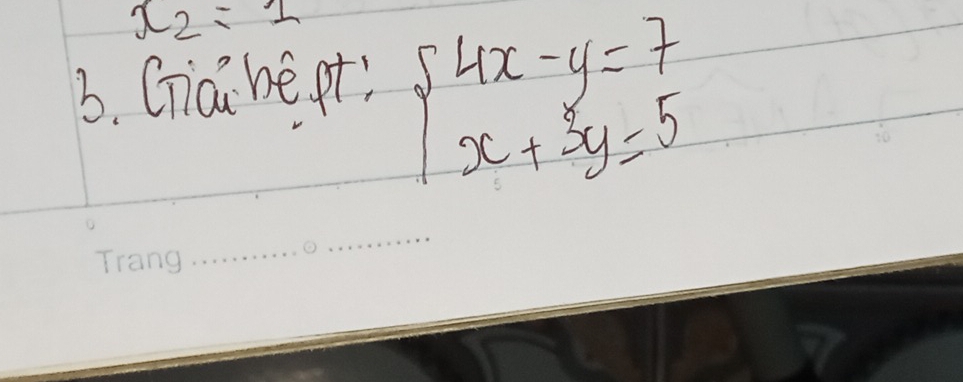 x₂ = 1
3. Giải hệ pt: { 4x - y = 7
x + 3y = 5
0 5 10
Trang ....................